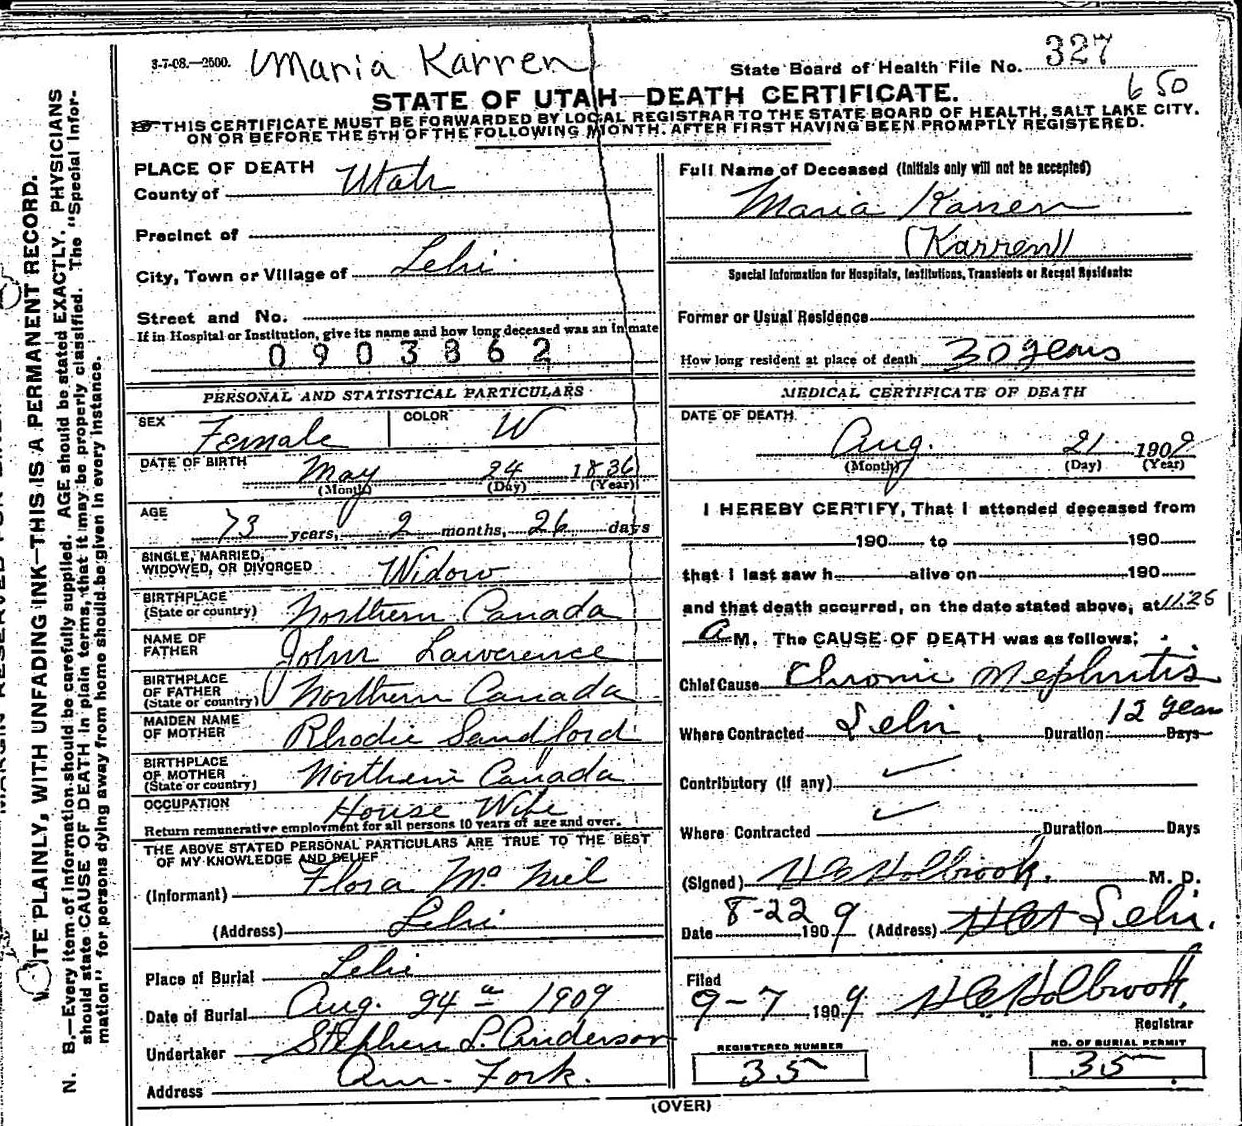 3-7-08.—2500. Maria Karren
State Board of Health File No. 327
650
STATE OF UTAH—DEATH CERTIFICATE.
THIS CERTIFICATE MUST BE FORWARDED BY LOCAL REGISTRAR TO THE STATE BOARD OF HEALTH, SALT LAKE CITY.
ON OR BEFORE THE 5TH OF THE FOLLOWING MONTH. AFTER FIRST HAVING BEEN PROMPTLY REGISTERED.
PLACE OF DEATH
County of Utah
Precinct of
City, Town or Village of Lehi
Street and No.
If in Hospital or Institution, give its name and how long deceased was an inmate
0903862
PERSONAL AND STATISTICAL PARTICULARS
SEX Female COLOR W
DATE OF BIRTH May 24 1836
(Month) (Day) (Year)
AGE 73 years, 2 months, 26 days
SINGLE, MARRIED,
WIDOWED, OR DIVORCED Widow
BIRTHPLACE
(State or country) Northern Canada
NAME OF
FATHER John Lawerence
BIRTHPLACE
OF FATHER
(State or country) Northern Canada
MAIDEN NAME
OF MOTHER Rhodie Sandford
BIRTHPLACE
OF MOTHER
(State or country) Northern Canada
OCCUPATION House Wife
Return remunerative employment for all persons 10 years of age and over.
THE ABOVE STATED PERSONAL PARTICULARS ARE TRUE TO THE BEST
OF MY KNOWLEDGE AND BELIEF
(Informant) Flora Mc Niel
(Address) Lehi
Place of Burial Lehi
Date of Burial Aug. 24 1909
Undertaker Stephen L. Anderson
Address Am. Fork.
Full Name of Deceased (Initials only will not be accepted)
Maria Karren
(Karren)
Special Information for Hospitals, Institutions, Transients or Recent Residents:
Former or Usual Residence
How long resident at place of death 30 years
MEDICAL CERTIFICATE OF DEATH
DATE OF DEATH.
Aug. 21 1909
(Month) (Day) (Year)
I HEREBY CERTIFY, That I attended deceased from
190 to 190
that I last saw h alive on 190
and that death occurred, on the date stated above, at 11.25
A M. The CAUSE OF DEATH was as follows:
Chief Cause Chronic Nephritis
12 years
Where Contracted Lehi. Duration Days
Contributory (if any) ✓
✓
Where Contracted Duration Days
(Signed) H C Holbrook. M. D.
Date 8-22 1909 (Address) Lehi.
Filed
9-7 1909 H C Holbrook,
Registrar
REGISTERED NUMBER
35
NO. OF BURIAL PERMIT
35
(OVER)
WRITE PLAINLY, WITH UNFADING INK—THIS IS A PERMANENT RECORD.
N. B.—Every item of information should be carefully supplied. AGE should be stated EXACTLY. PHYSICIANS
should state CAUSE OF DEATH in plain terms, that it may be properly classified. The "Special Infor-
mation" for persons dying away from home should be given in every instance.